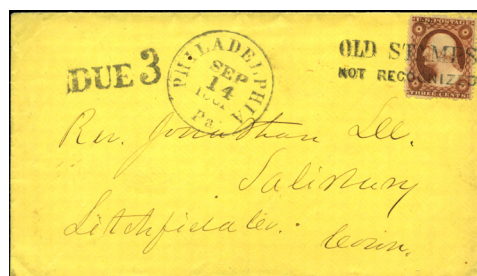 DUE 3
PHILADELPHIA Pa.
SEP
14
OLD STAMPS
NOT RECOGNIZED
U.S. POSTAGE
THREE CENTS
Rev. Jonathan Lee.
Salisbury
Litchfield Co.
Conn.